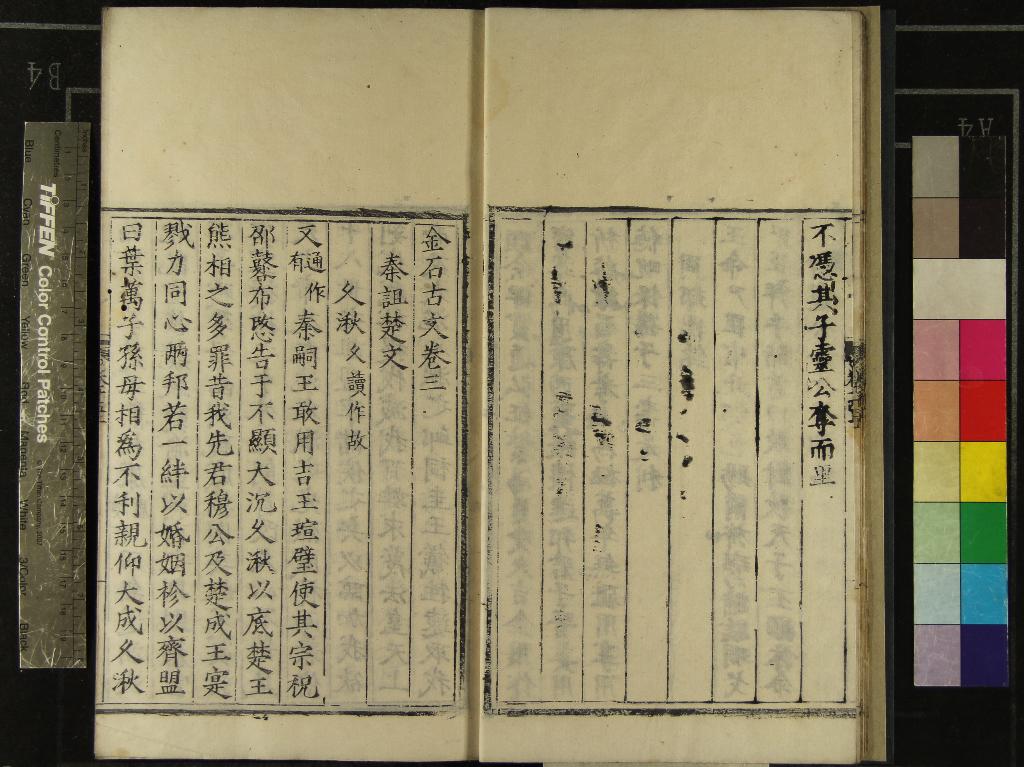 不馮其子靈公奪而里
金石古文卷三
秦詛楚文
久湫久讀作故
又通有作秦嗣王敢用吉玉瑄璧使其宗祝
邵鼛布愍告于不顯大沉久湫以底楚王
熊相之多罪昔我先君穆公及楚成王寔
戮力同心兩邦若一絆以婚姻袗以齊盟
曰葉萬子孫母相為不利親仰大成久湫
TIFFEN Color Control Patches
Blue
Cyan
Green
Yellow
Red
Magenta
White
3/Color
Black
Centimetres
Inches
B4
A4